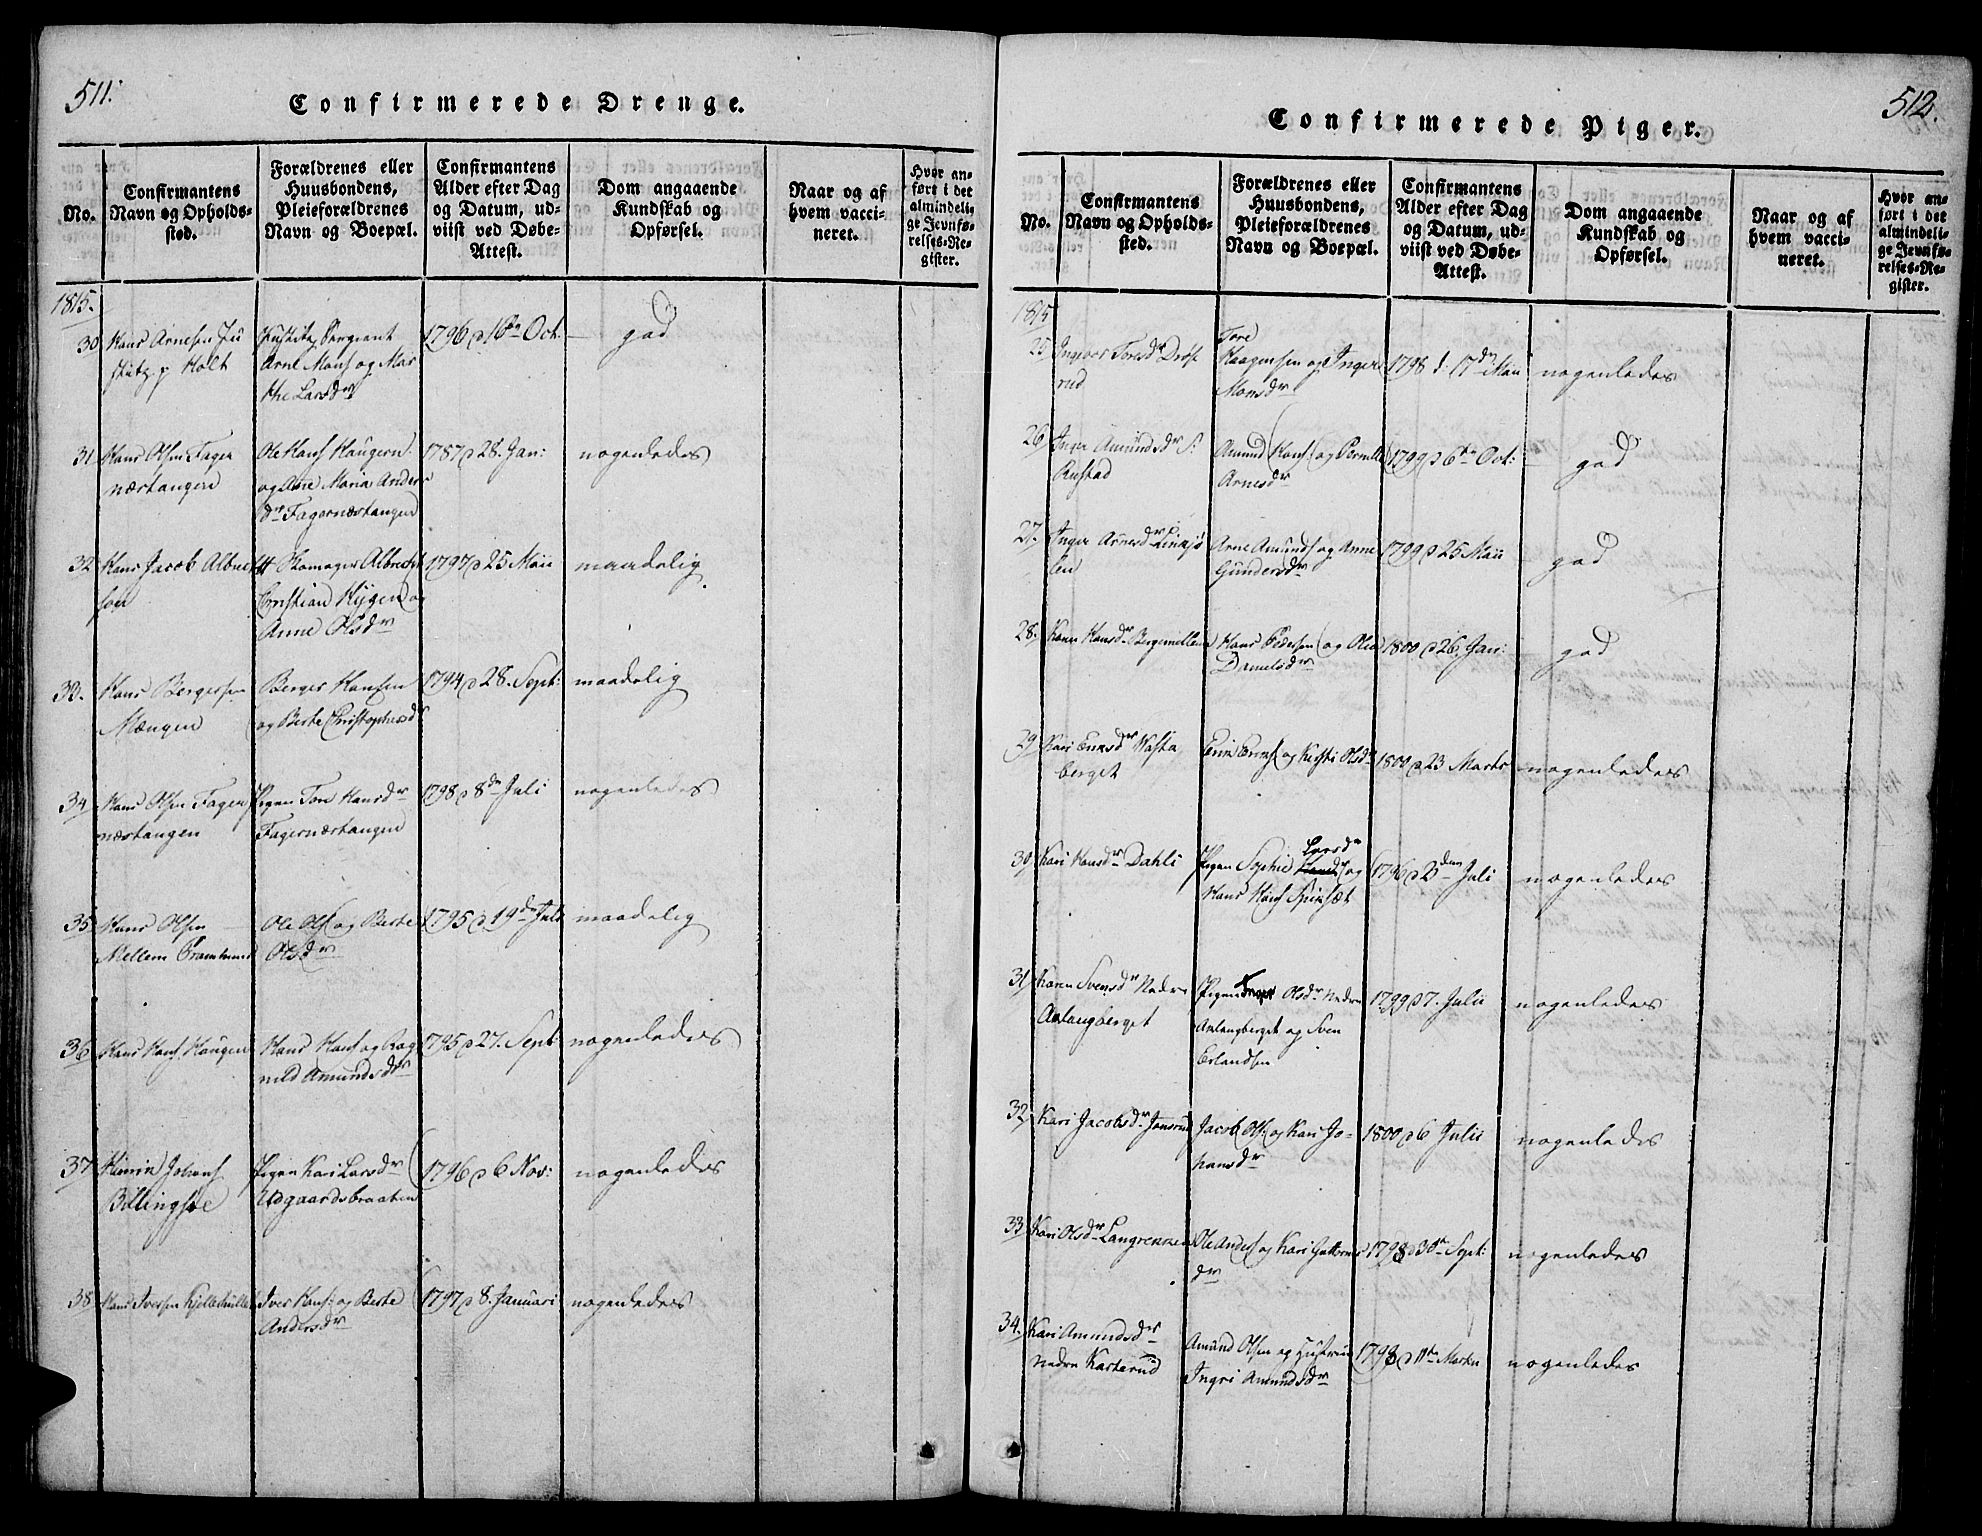 511.
Confirmerede Drenge.
No.
Confirmantens
Navn og Opholds-
sted.
Forældrenes eller
Huusbondens,
Pleieforældrenes
Navn og Boepæl.
Confirmantens
Alder efter Dag
og Datum, ud-
viist ved Døbe-
Attest.
Dom angaaende
Kundskab og
Opførsel.
Naar og af
hvem vacci-
neret.
Hvor an-
ført i det
almindeli-
ge Jevnfø-
relses-Re-
gister.
1815.
30 Hans Arnesen
Holt
Sergeant
Arne Mons og Mar
the Larsdr
1796 d 16de Oct.
god
31 Hans Olsen Fager
næstangen
Ole Hans Haugern
og Ane Maria Anders
dr Fagernæstangen
1787 d 28. Jan:
nogenledes
32 Hans Jacob
Skomager Albrecht
Christian
Anne Olsdr
1797 d 25 Maii
maadelig
33. Hans Bergersen
Mængen
Berger Hansen
og Berte Christophersd
1794 d 28. Sept:
maadelig
34 Hans Olsen Fager
næstangen
Pigen Tore Hansdr
Fagernæstangen
1798 d 8de Juli
nogenledes
35 Hans Olsen
Mellem
Ole Ols og Berte
Olsdr
1795 d 19de Juli
maadelig
36 Hans Hans. Haugen
Hans Hans og Rag
nild Amundsdr
1795 d 27. Sept:
nogenledes
37 Johans
Billingsøe
Pigen Kari Larsdr
Udgaardsbraaten
1796 d 6 Nov:
nogenledes
38 Hans Iversen
Iver Hans: og Berte
Andersdr
1797 d 8. Januari
nogenledes
512.
Confirmerede Piger.
No.
Confirmantens
Navn og Opholds-
sted.
Forældrenes eller
Huusbondens,
Pleieforældrenes
Navn og Boepæl.
Confirmantens
Alder efter Dag
og Datum, ud-
viist ved Døbe-
Attest.
Dom angaaende
Kundskab og
Opførsel.
Naar og af
hvem vacci-
neret.
Hvor an-
ført i det
almindeli-
ge Jevnfø-
relses-Re-
gister.
1815
25 Toresdr
rud
Tore
Haagensen og Inger
Monsdr
1798 d: 17de Maii
nogenledes
26 Inger Amundsdr
Rustad
Amund Hans: og Pernille
Arnesdr
1799 d 6te Oct:
god
27. Inger Arnesdr
Arne Amunds og Anne
Gundersdr
1799 d 25 Maii
god
28. Karen Hansdr
Hans Pedersen og Olea
Danielsdr
1800 d 26 Jan:
god
29 Kari
berget
og Kisti Olsdr
1800 d 23 Marts
nogenledes
30 Kari Hansdr Dahli
Pigen Sophie Larsdr og
Hans Hans
1796 d 2den Juli
nogenledes
31 Karen Svensdr Nedre
Aslangberget
Pigen Olsdr Nedre
Aslangberget og Sven
Erlandsen
1799 d 7. Julii
nogenledes
32 Kari Jacobsdr
Jacob Ols: og Kari Jo-
hansdr
1800 d 6 Julii
nogenledes
33 Kari Olsdr Langrekken
Ole Anders og Kari Guttorms
dr
1798 d 30te Sept:
nogenledes
34. Kari Amundsdr
nedre Kasterud
Amund Olsen og Hustrue
Ingri Amundsdr
1798 d 11te Martii
nogenledes